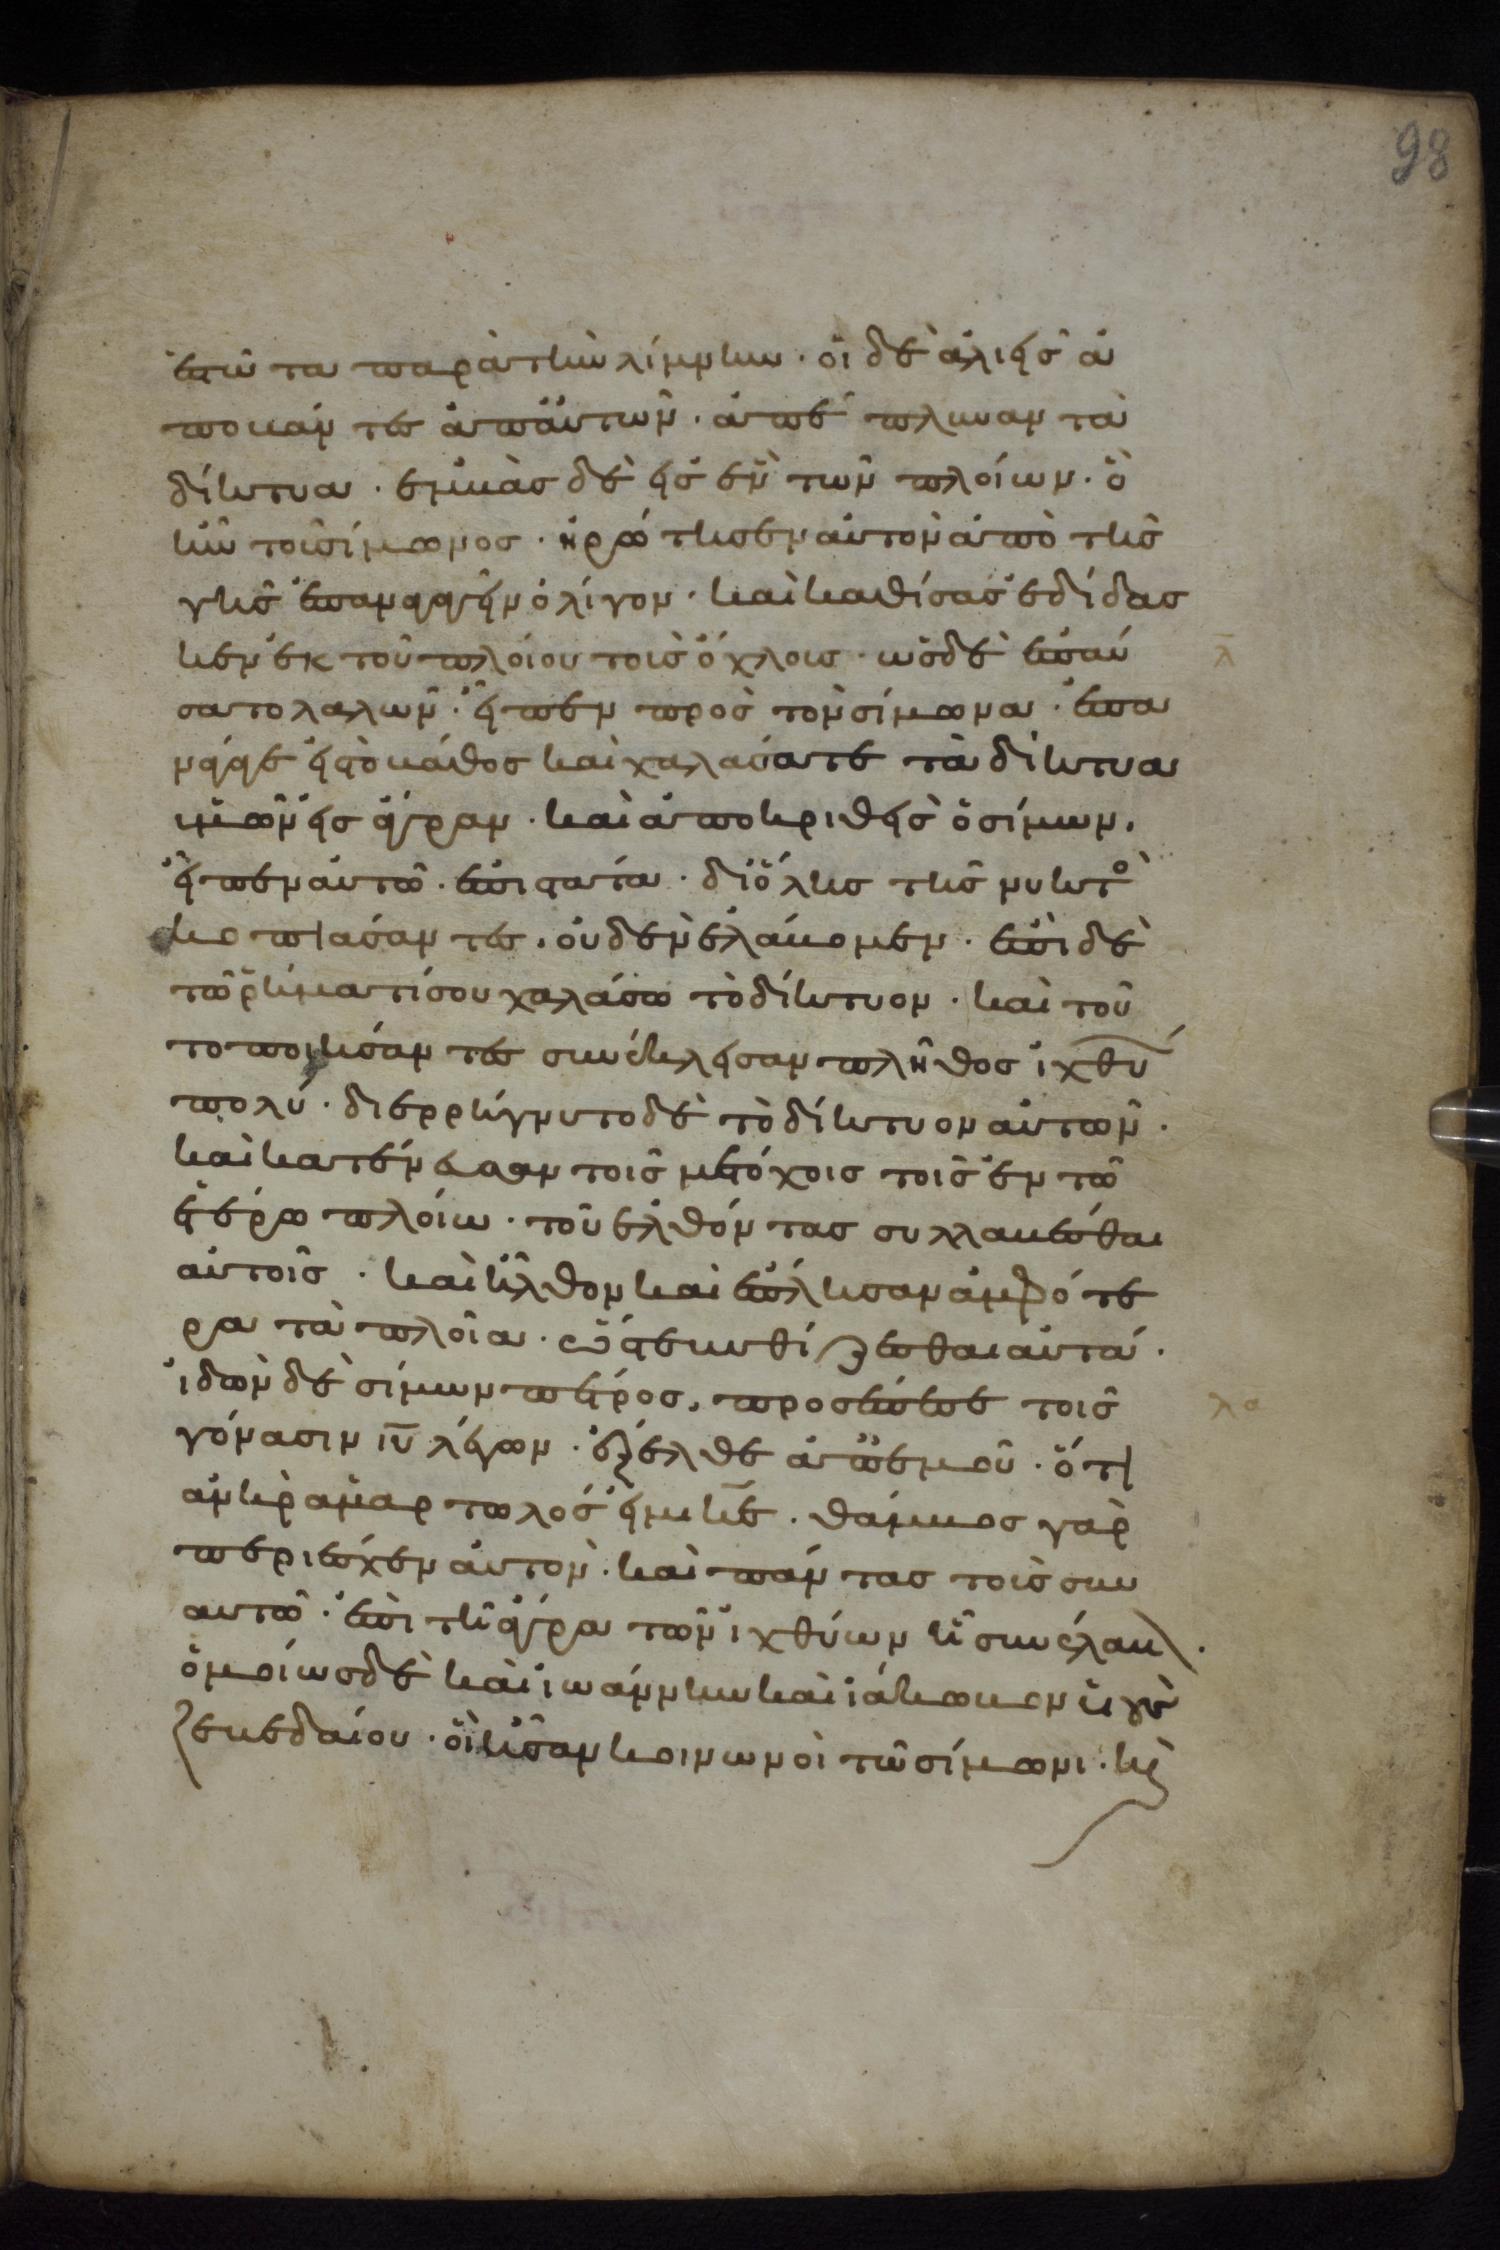 98
ἑστῶτα παρὰ τὴν λίμνην · οἱ δὲ ἁλιεῖς ἀ
ποβάντες ἀπ' αὐτῶν · ἀπέπλυναν τὰ
δίκτυα · ἐμβὰς δὲ εἰς ἓν τῶν πλοίων · ὃ
ἦν τοῦ σίμωνος · ἠρώτησεν αὐτὸν ἀπὸ τῆς
γῆς ἐπαναγαγεῖν ὀλίγον · καὶ καθίσας ἐδίδας
κεν ἐκ τοῦ πλοίου τοὺς ὄχλους · ὡς δὲ ἐπαύ
λ
σατο λαλῶν · εἶπεν πρὸς τὸν σίμωνα · ἐπα
νάγαγε εἰς τὸ βάθος καὶ χαλάσατε τὰ δίκτυα
ὑμῶν εἰς ἄγραν · καὶ ἀποκριθεὶς ὁ σίμων,
εἶπεν αὐτῶ · ἐπιστάτα · δι' ὅλης τῆς νυκτὸ
κοπιάσαντες, οὐδὲν ἐλάβομεν · ἐπὶ δὲ
τῶ ῥήματί σου χαλάσω τὸ δίκτυον · καὶ τοῦ
το ποιήσαντες συνέκλεισαν πλῆθος ἰχθύ
πολύ · διερρήγνυτο δὲ τὸ δίκτυον αὐτῶν ·
καὶ κατένευσαν τοῖς μετόχοις τοῖς ἐν τῶ
ἑτέρω πλοίω · τοῦ ἐλθόντας συλλαβέσθαι
αὐτοῖς · καὶ ἦλθον καὶ ἔπλησαν ἀμφότε
ρα τὰ πλοῖα · ὥστε βυθίζεσθαι αὐτά ·
ἰδὼν δὲ σίμων πέτρος, προσέπεσε τοῖς
λα
γόνασιν ιυ λέγων · ἔξελθε ἀπ' ἐμοῦ · ὅτι
ἀνὴρ ἁμαρτωλός εἰμι κε · θάμβος γὰρ
περιέσχεν αὐτὸν · καὶ πάντας τοὺς συν
αυτῶ · ἐπὶ τῆ ἄγρα τῶν ἰχθύων ἧ συνέλαβ ·
ὁμοίως δὲ καὶ ἰωάννην καὶ ἰάκωβον υἱοὺς
ζεβεδαίου · οἳ ἦσαν κοινωνοὶ τῶ σίμωνι · κ